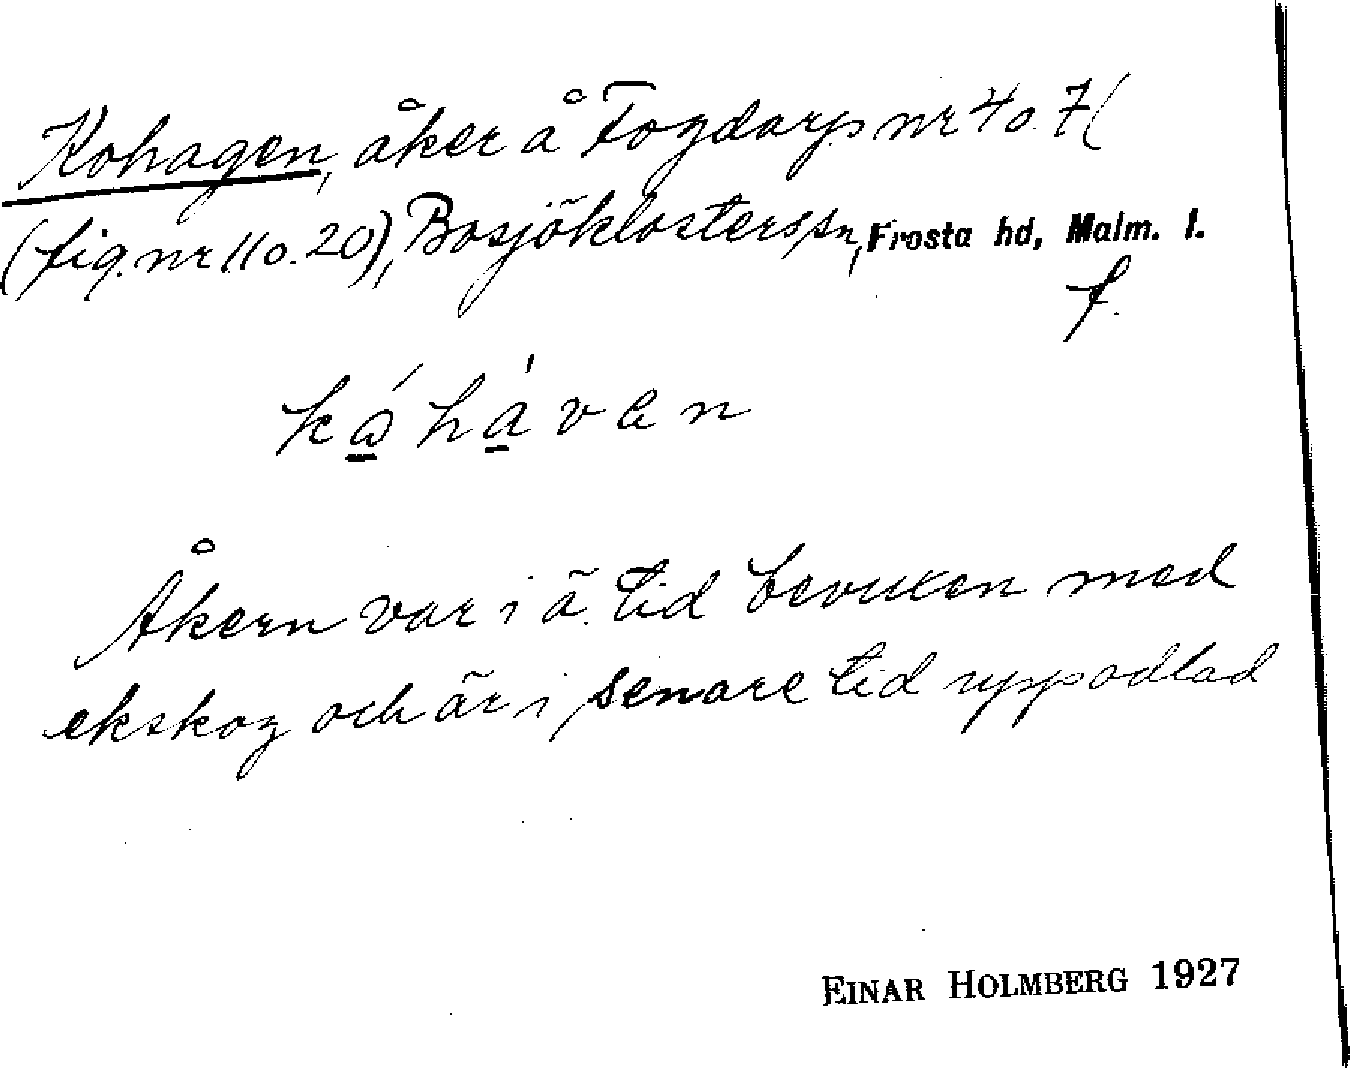 Kohagen, åker å Fogdarp nr 4 o. 7(
(fig. nr 11 o. 20), Bosjöklosters sn, Frosta hd, Malm. l.
f.
Åkern var i ä. tid bevuxen med
ekskog och är i senare tid uppodlad
EINAR HOLMBERG 1927